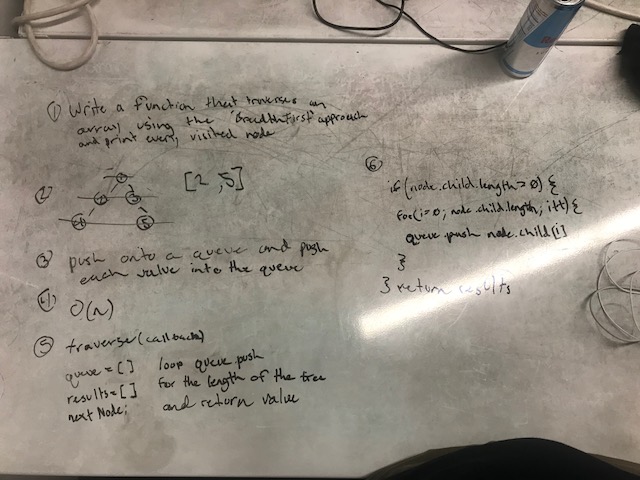 ① Write a function that traverses an
array using the "BreadthFirst" approach
and print every visited node
②
[2, 5]
③ push onto a queue and push
each value into the queue
④ O(n)
⑤ traverse(callback)
queue = [] loop queue.push
results = [] for the length of the tree
next Node; and return value
⑥
if (node.child.length > 0) {
for(i=0; node.child.length; i++) {
queue.push node.child[i]
}
} return results